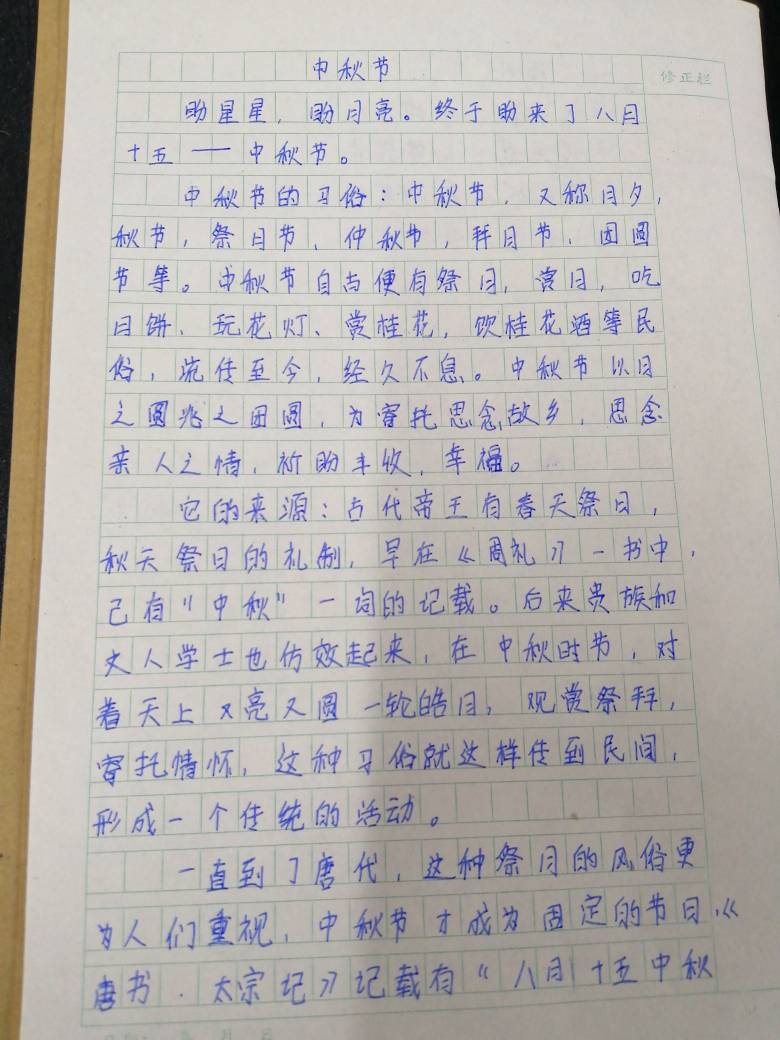 中秋节
修正栏
盼星星，盼月亮。终于盼来了八月
十五——中秋节。
中秋节的习俗：中秋节，又称月夕，
秋节，祭月节、仲秋节，拜月节、团圆
节等。中秋节自古便有祭月，赏月，吃
月饼、玩花灯、赏桂花，饮桂花酒等民
俗，流传至今，经久不息。中秋节以月
之圆兆之团圆，为寄托思念故乡，思念
亲人之情，祈盼丰收，幸福。
它的来源：古代帝王有春天祭日，
秋天祭月的礼制，早在《周礼》一书中，
已有“中秋”一词的记载。后来贵族和
文人学士也仿效起来，在中秋时节，对
着天上又亮又圆一轮皓月，观赏祭拜，
寄托情怀，这种习俗就这样传到民间，
形成一个传统的活动。
一直到了唐代，这种祭月的风俗更
为人们重视，中秋节才成为固定的节日，《
唐书·太宗记》记载有“八月十五中秋